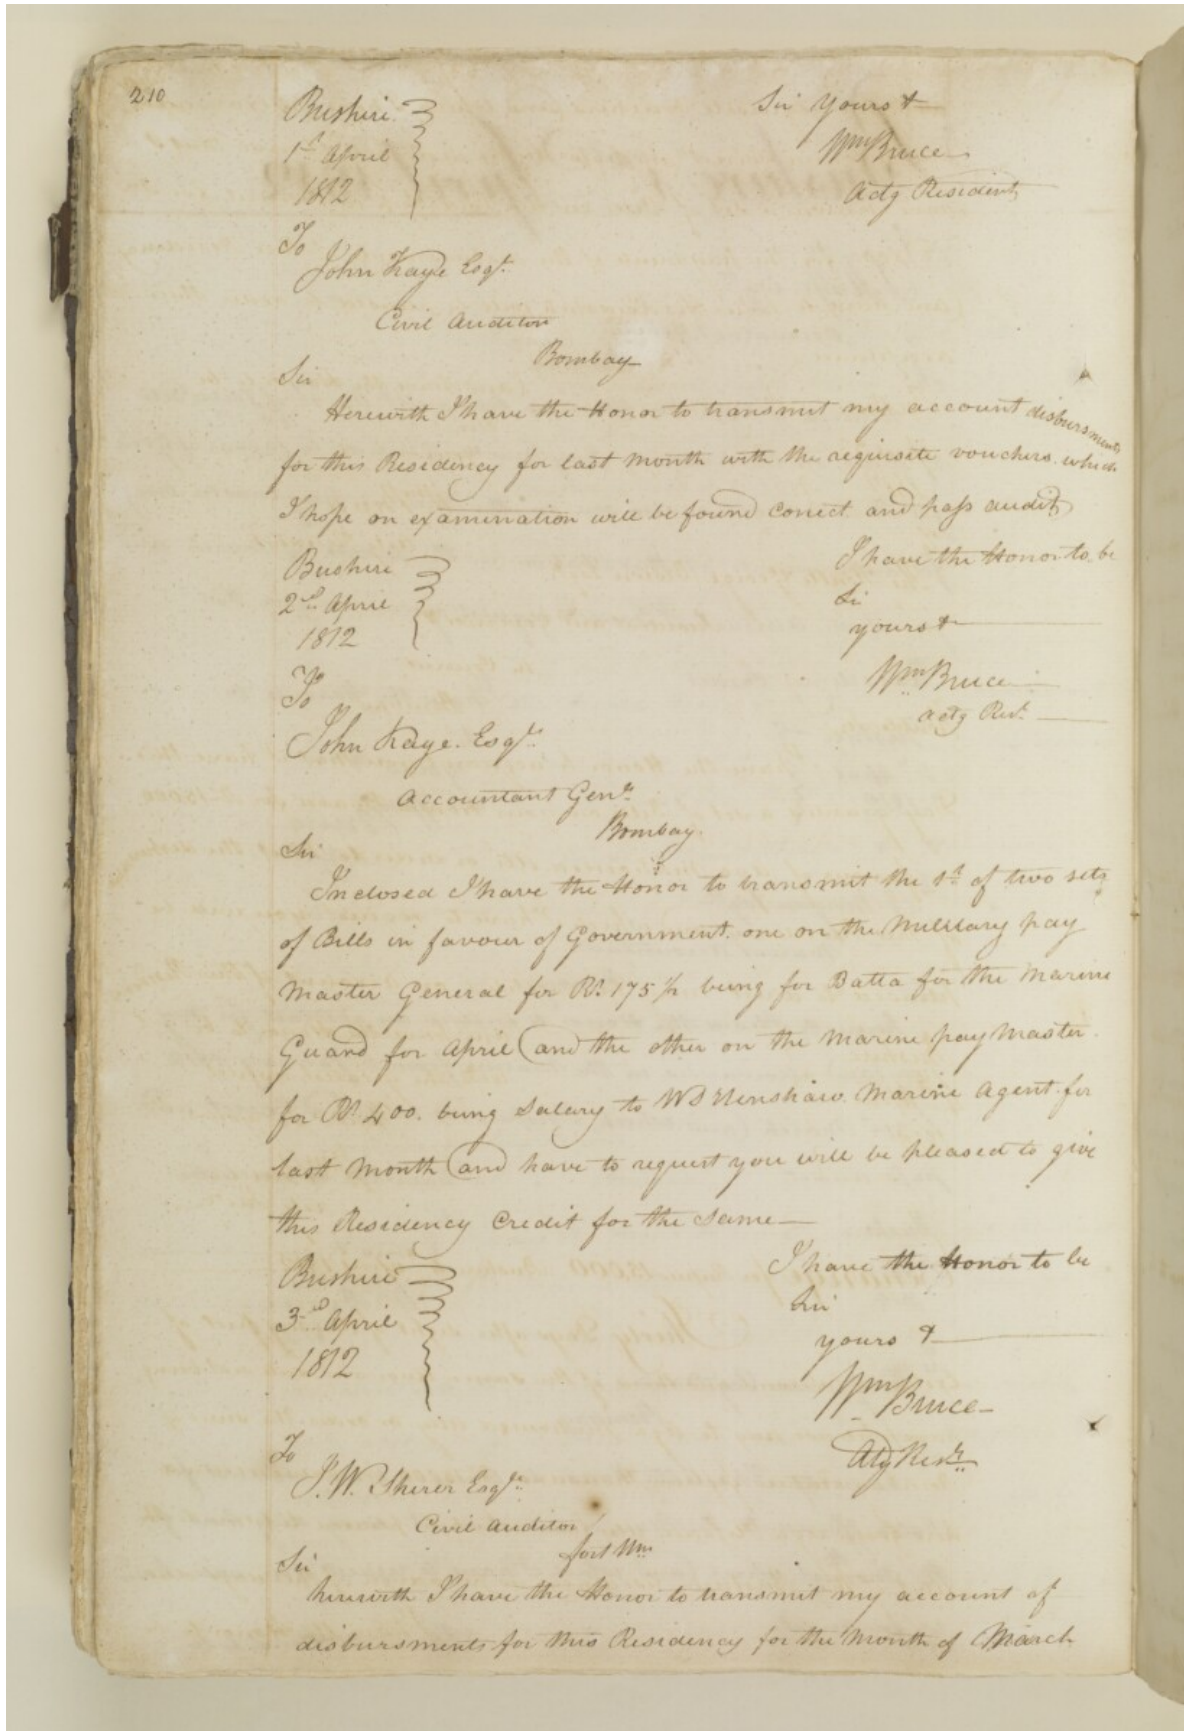 210
Bushire
1st April
1812
Sir yours &
Wm Bruce
Actg Resident
To
John Kaye Esqr.
Civil Auditor
Bombay
Sir
Herewith I have the Honor to transmit my account disbursments
for this Residency for last month with the requisite vouchers which
I hope on examination will be found correct and pass audit
Bushire
2nd April
1812
I have the Honor to be
Sir
yours &
Wm Bruce
actg Rest.
To
John Kaye Esqr.
Accountant Genl.
Bombay
Sir
Inclosed I have the Honor to transmit the 1st of two sets
of Bills in favour of Government one on the Military pay
Master General for Rs. 175 being for Batta for the Marine
Guard for April and the other on the Marine pay Master
for Rs. 400. being Salary to Marine Agent for
last Month and have to request you will be pleased to give
this Residency Credit for the Same
Bushire
3rd April
1812
I have the Honor to be
Sir
yours &
Wm Bruce
Actg Rest.
To
J. W. Sherer Esqr.
Civil Auditor
fort Wm
Sir
herewith I have the Honor to transmit my account of
disbursments for this Residency for the Month of March